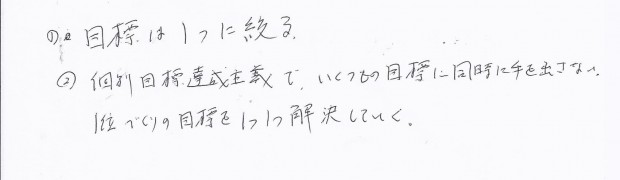 ① 目標は1つに絞る
② 個別目標達成主義で、いくつもの目標に同時に手を出さない、
1位づくりの目標を1つ1つ解決していく。